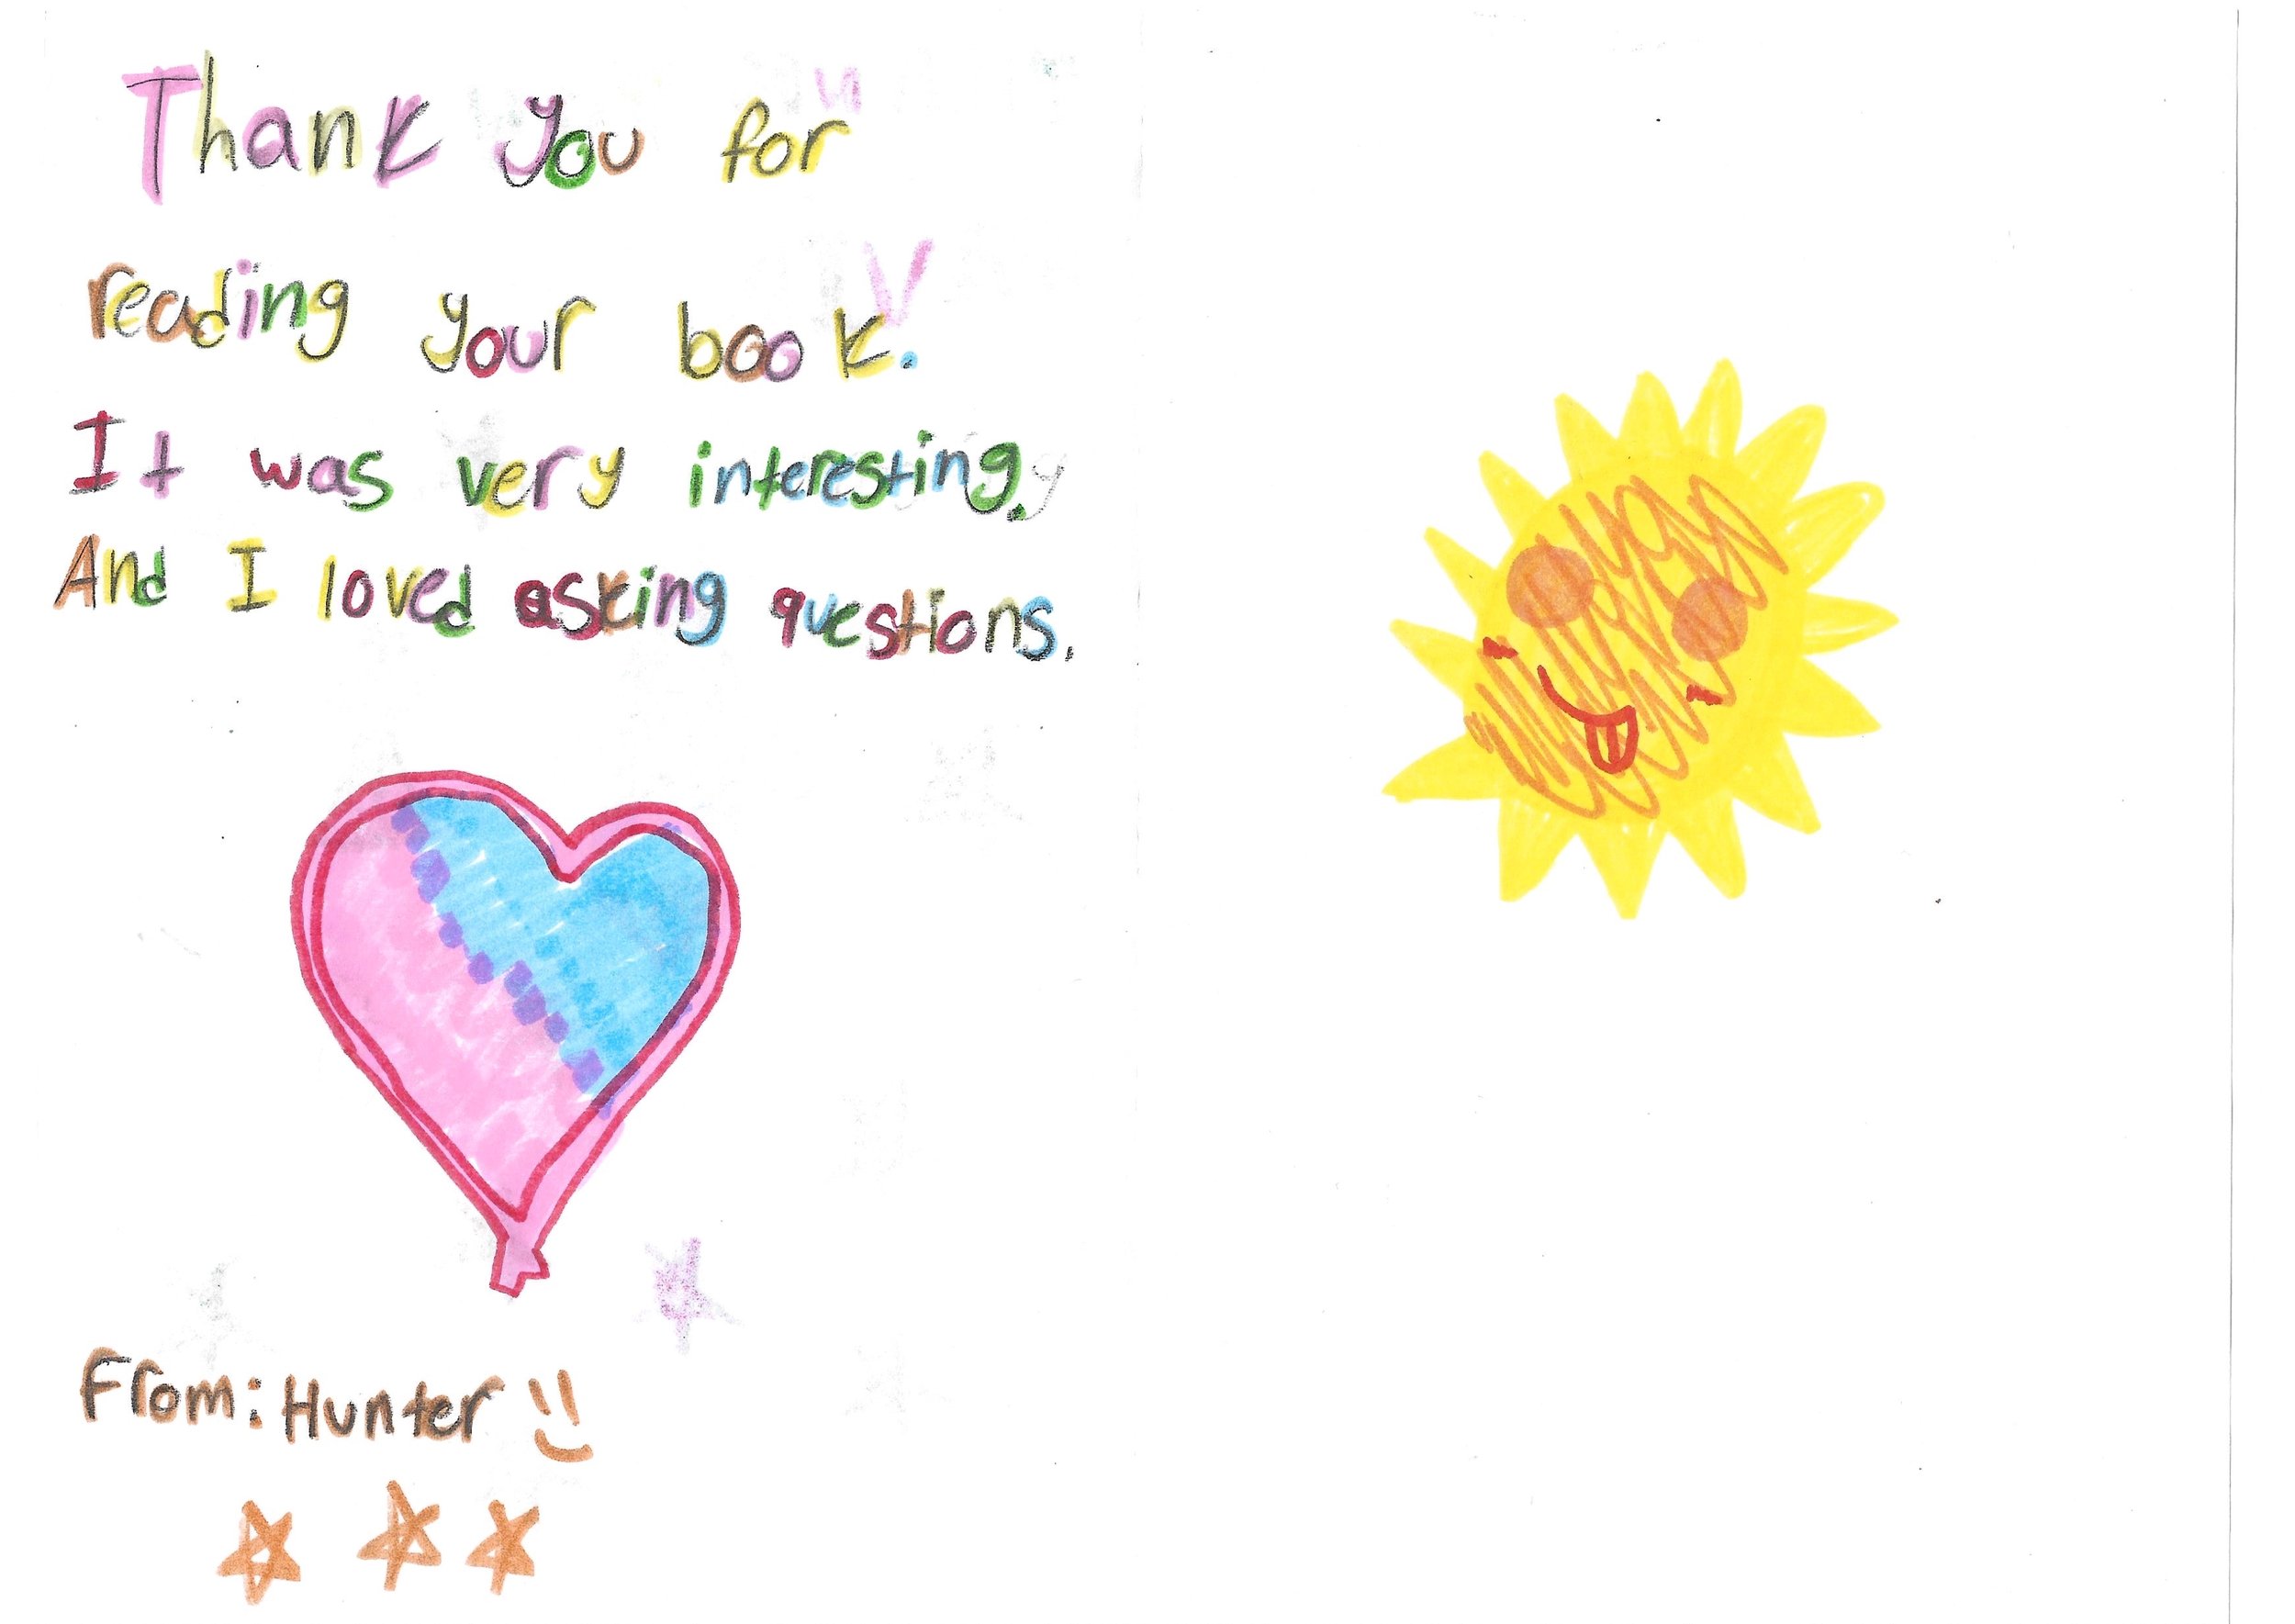 Thank you for
reading your book.
It was very interesting.
And I loved asking questions.
From: Hunter